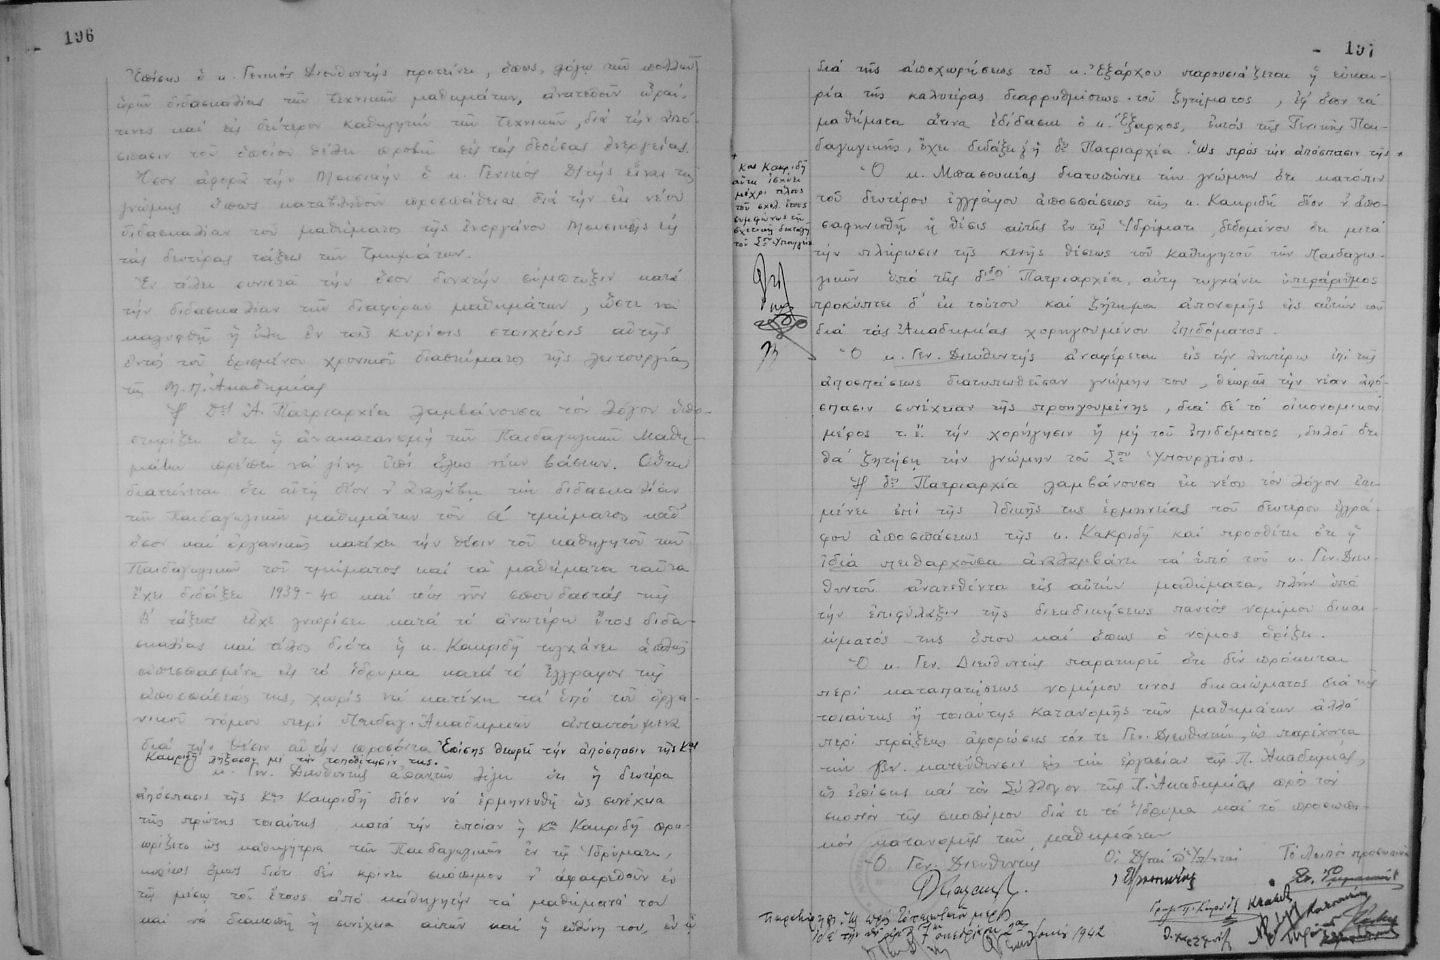 196
Ἐπίσης ὁ κ. Γενικός Διευθυντής προτείνει, ὅπως, λόγῳ τῶν πολλῶν
ὡρῶν διδασκαλίας τῶν τεχνικῶν μαθημάτων, ἀνατεθοῦν ὧραί
τινες καί εἰς δεύτερον καθηγητήν τῶν τεχνικῶν, διά τήν ἀπό-
σπασιν τοῦ ὁποίου θέλει προβῆ εἰς τάς δεούσας ἐνεργείας.
Ὅσον ἀφορᾶ τήν Μουσικήν ὁ κ. Γενικός Δ/τής εἶναι τῆς
γνώμης ὅπως καταβληθοῦν προσπάθειαι διά τήν ἐκ νέου
διδασκαλίαν τοῦ μαθήματος τῆς ἐνοργάνου Μουσικῆς εἰς
τάς δευτέρας τάξεις τῶν τμημάτων.
Ἐν τέλει συνιστᾶ τήν ὅσον δυνατήν σύμπτυξιν κατά
τήν διδασκαλίαν τῶν διαφόρων μαθημάτων, ὥστε νά
καλυφθῆ ἡ ὕλη ἐν τοῖς κυρίοις στοιχείοις αὐτῆς
ἐντός τοῦ ὁρισμένου χρονικοῦ διαστήματος τῆς λειτουργίας
τῆς Μ.Π. Ἀκαδημίας
Ἡ Δὶς Ἀ. Πατριαρχία λαμβάνουσα τόν λόγον ὑπο-
στηρίζει ὅτι ἡ ἀνακατανομή τῶν Παιδαγωγικῶν Μαθη-
μάτων πρέπει νά γίνῃ ἐπί ὅλως νέων βάσεων. Οὕτω
διατείνεται ὅτι αὐτή δέον ν' ἀναλάβῃ τήν διδασκαλίαν
τῶν Παιδαγωγικῶν μαθημάτων τοῦ Α' τμήματος καθ'
ὅσον καί ὀργανικῶς κατέχει τήν θέσιν τοῦ καθηγητοῦ τῶν
Παιδαγωγικῶν τοῦ τμήματος καί τά μαθήματα ταῦτα
ἔχει διδάξει 1939-40 καί τούς νῦν σπουδαστάς τῆς
Β' τάξεως εἶχε γνωρίσει κατά τό ἀνωτέρω ἔτος διδα-
σκαλίας καί τέλος διότι ἡ κ. Κακριδῆ τυγχάνει ἁπλῶς
ἀπεσπασμένη εἰς τό ἵδρυμα κατά τό ἔγγραφον τῆς
ἀποσπάσεώς της, χωρίς νά κατέχῃ τά ὑπό τοῦ ὀργα-
νικοῦ νόμου περί Παιδαγ. Ἀκαδημιῶν ἀπαιτούμενα
διά τήν θέσιν αὐτήν προσόντα. Ἐπίσης θεωρεῖ τήν ἀπόσπασιν τῆς Κας
Κακριδῆ λήξασαν μέ τήν τοποθέτησίν της.
κ. Γεν. Διευθυντής ἀπαντῶν λέγει ὅτι ἡ δευτέρα
ἀπόσπασις τῆς Κας Κακριδῆ δέον νά ἑρμηνευθῆ ὡς συνέχεια
τῆς πρώτης τοιαύτης, κατά τήν ὁποίαν ἡ Κα Κακριδῆ προω-
ρίζετο ὡς καθηγήτρια τῶν Παιδαγωγικῶν ἐν τῷ Ἱδρύματι,
κυρίως ὅμως διότι δέν κρίνει σκόπιμον ν' ἀφαιρεθοῦν ἐν
τῷ μέσῳ τοῦ ἔτους ἀπό καθηγητήν τά μαθήματά του
καί νά διακοπῆ ἡ συνέχεια αὐτῶν καί ἡ εὐθύνη του, ἐν ᾧ
197
διά τῆς ἀποχωρήσεως τοῦ κ. Ἐξάρχου παρουσιάζεται ἡ εὐκαι-
ρία τῆς καλυτέρας διαρρυθμίσεως τοῦ ζητήματος, ἐφ' ὅσον τά
μαθήματα ἅτινα ἐδίδασκε ὁ κ. Ἔξαρχος, ἐκτός τῆς Γενικῆς Παι-
δαγωγικῆς, ἔχει διδάξει ἡ δὶς Πατριαρχία. Ὡς πρός τήν ἀπόσπασιν τῆς +
+ Κας Κακριδῆ
αὕτη ἰσχύει
μέχρι τέλους
τοῦ σχολ. ἔτους
συμφώνως τῇ
σχετικῇ διαταγῇ
τοῦ Σου Ὑπουργείου
Ὁ κ. Μπασουκέας διατυπώνει τήν γνώμην ὅτι κατόπιν
τοῦ δευτέρου ἐγγράφου ἀποσπάσεως τῆς κ. Κακριδῆ δέον ν' ἀπο-
σαφηνισθῆ ἡ θέσις αὐτῆς ἐν τῷ Ἱδρύματι, δεδομένου ὅτι μετά
τήν πλήρωσιν τῆς κενῆς θέσεως τοῦ καθηγητοῦ τῶν Παιδαγω-
γικῶν ὑπό τῆς δίδος Πατριαρχία, αὕτη τυγχάνει ὑπεράριθμος
προκύπτει δ' ἐκ τούτου καί ζήτημα ἀπονομῆς εἰς αὐτήν τοῦ
διά τάς Ἀκαδημίας χορηγουμένου ἐπιδόματος.
Ὁ κ. Γεν. Διευθυντής ἀναφέρεται εἰς τήν ἀνωτέρω ἐπί τῆς
ἀποσπάσεως διατυπωθεῖσαν γνώμην του, θεωρεῖ τήν νέαν ἀπό-
σπασιν συνέχειαν τῆς προηγουμένης, διά δέ τό οἰκονομικόν
μέρος τ.ἔ. τήν χορήγησιν ἤ μή τοῦ ἐπιδόματος, δηλοῖ ὅτι
θά ζητήση τήν γνώμην τοῦ Σου Ὑπουργείου.
Ἡ δὶς Πατριαρχία λαμβάνουσα ἐκ νέου τόν λόγον ἐπι-
μένει ἐπί τῆς ἰδικῆς της ἑρμηνείας τοῦ δευτέρου ἐγγρά-
φου ἀποσπάσεως τῆς κ. Κακριδῆ καί προσθέτει ὅτι ἡ
ἰδία πειθαρχοῦσα ἀναλαμβάνει τά ὑπό τοῦ κ. Γεν. Διευ-
θυντοῦ ἀνατεθέντα εἰς αὐτήν μαθήματα, πλήν ὑπό
τήν ἐπιφύλαξιν τῆς διεκδικήσεως παντός νομίμου δικαι-
ώματός της ὅπου καί ὅπως ὁ νόμος ὁρίζει.
Ὁ κ. Γεν. Διευθυντής παρατηρεῖ ὅτι δέν πρόκειται
περί καταπατήσεως νομίμου τινος δικαιώματος διά τῆς
τοιαύτης ἤ τοιαύτης κατανομῆς τῶν μαθημάτων ἀλλά
περί πράξεως ἀφορώσης τόν τε Γεν. Διευθυντήν, ὡς παρέχοντα
τήν γεν. κατεύθυνσιν εἰς τήν ἐργασίαν τῆς Π. Ἀκαδημίας,
ὡς ἐπίσης καί τόν Σύλλογον τῆς Π. Ἀκαδημίας πρός τόν
σκοπόν τῆς σκοπίμου διά τε τό Ἵδρυμα καί τό προσωπι-
κόν κατανομῆς τῶν μαθημάτων
Ὁ Γεν. Διευθυντής
Οἱ Δ/νταί
Τό λοιπόν προσωπικόν
1942